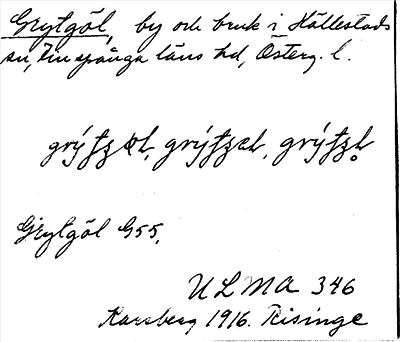 Grytgöl, by och bruk i Hällestads
sn, Finspånga läns hd, Österg. l.
Grytgöl G55.
ULMA 346
Karsberg 1916. Risinge